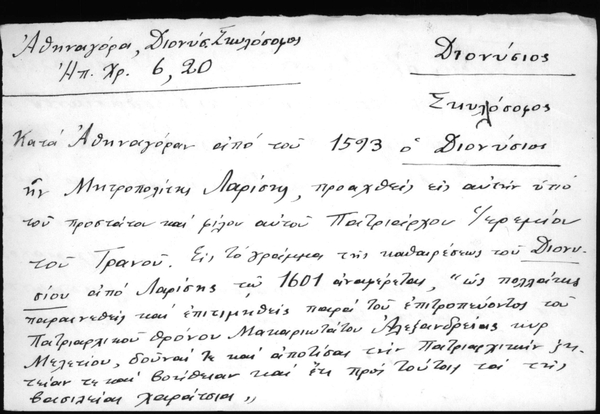 Ἀθηναγόρα, Διονύσ. Σκυλόσοφος
Ἠπ. Χρ. 6, 20
Διονύσιος
Σκυλλόσοφος
Κατὰ Ἀθηναγόραν ἀπὸ τοῦ 1593 ὁ Διονύσιος
ἦν Μητροπολίτης Λαρίσης, προαχθεὶς εἰς αὐτὴν ὑπὸ
τοῦ προστάτου καὶ φίλου αὐτοῦ Πατριάρχου Ἱερεμίου
τοῦ Τρανοῦ. Εἰς τὸ γράμμα τῆς καθαιρέσεως τοῦ Διονυ-
σίου ἀπὸ Λαρίσης τῷ 1601 ἀναφέρεται, "ὡς πολλάκις
παραινεθεὶς καὶ ἐπιτιμηθεὶς παρὰ τοῦ ἐπιτροπεύοντος τοῦ
Πατριαρχικοῦ θρόνου Μακαριωτάτου Ἀλεξανδρείας κυρ
Μελετίου, δοῦναί τε καὶ ἀποτίσαι τὴν Πατριαρχικὴν ζη-
τείαν τε καὶ βοήθειαν καὶ ἔτι πρὸς τούτοις καὶ τῆς
βασιλείας χαράτσια"